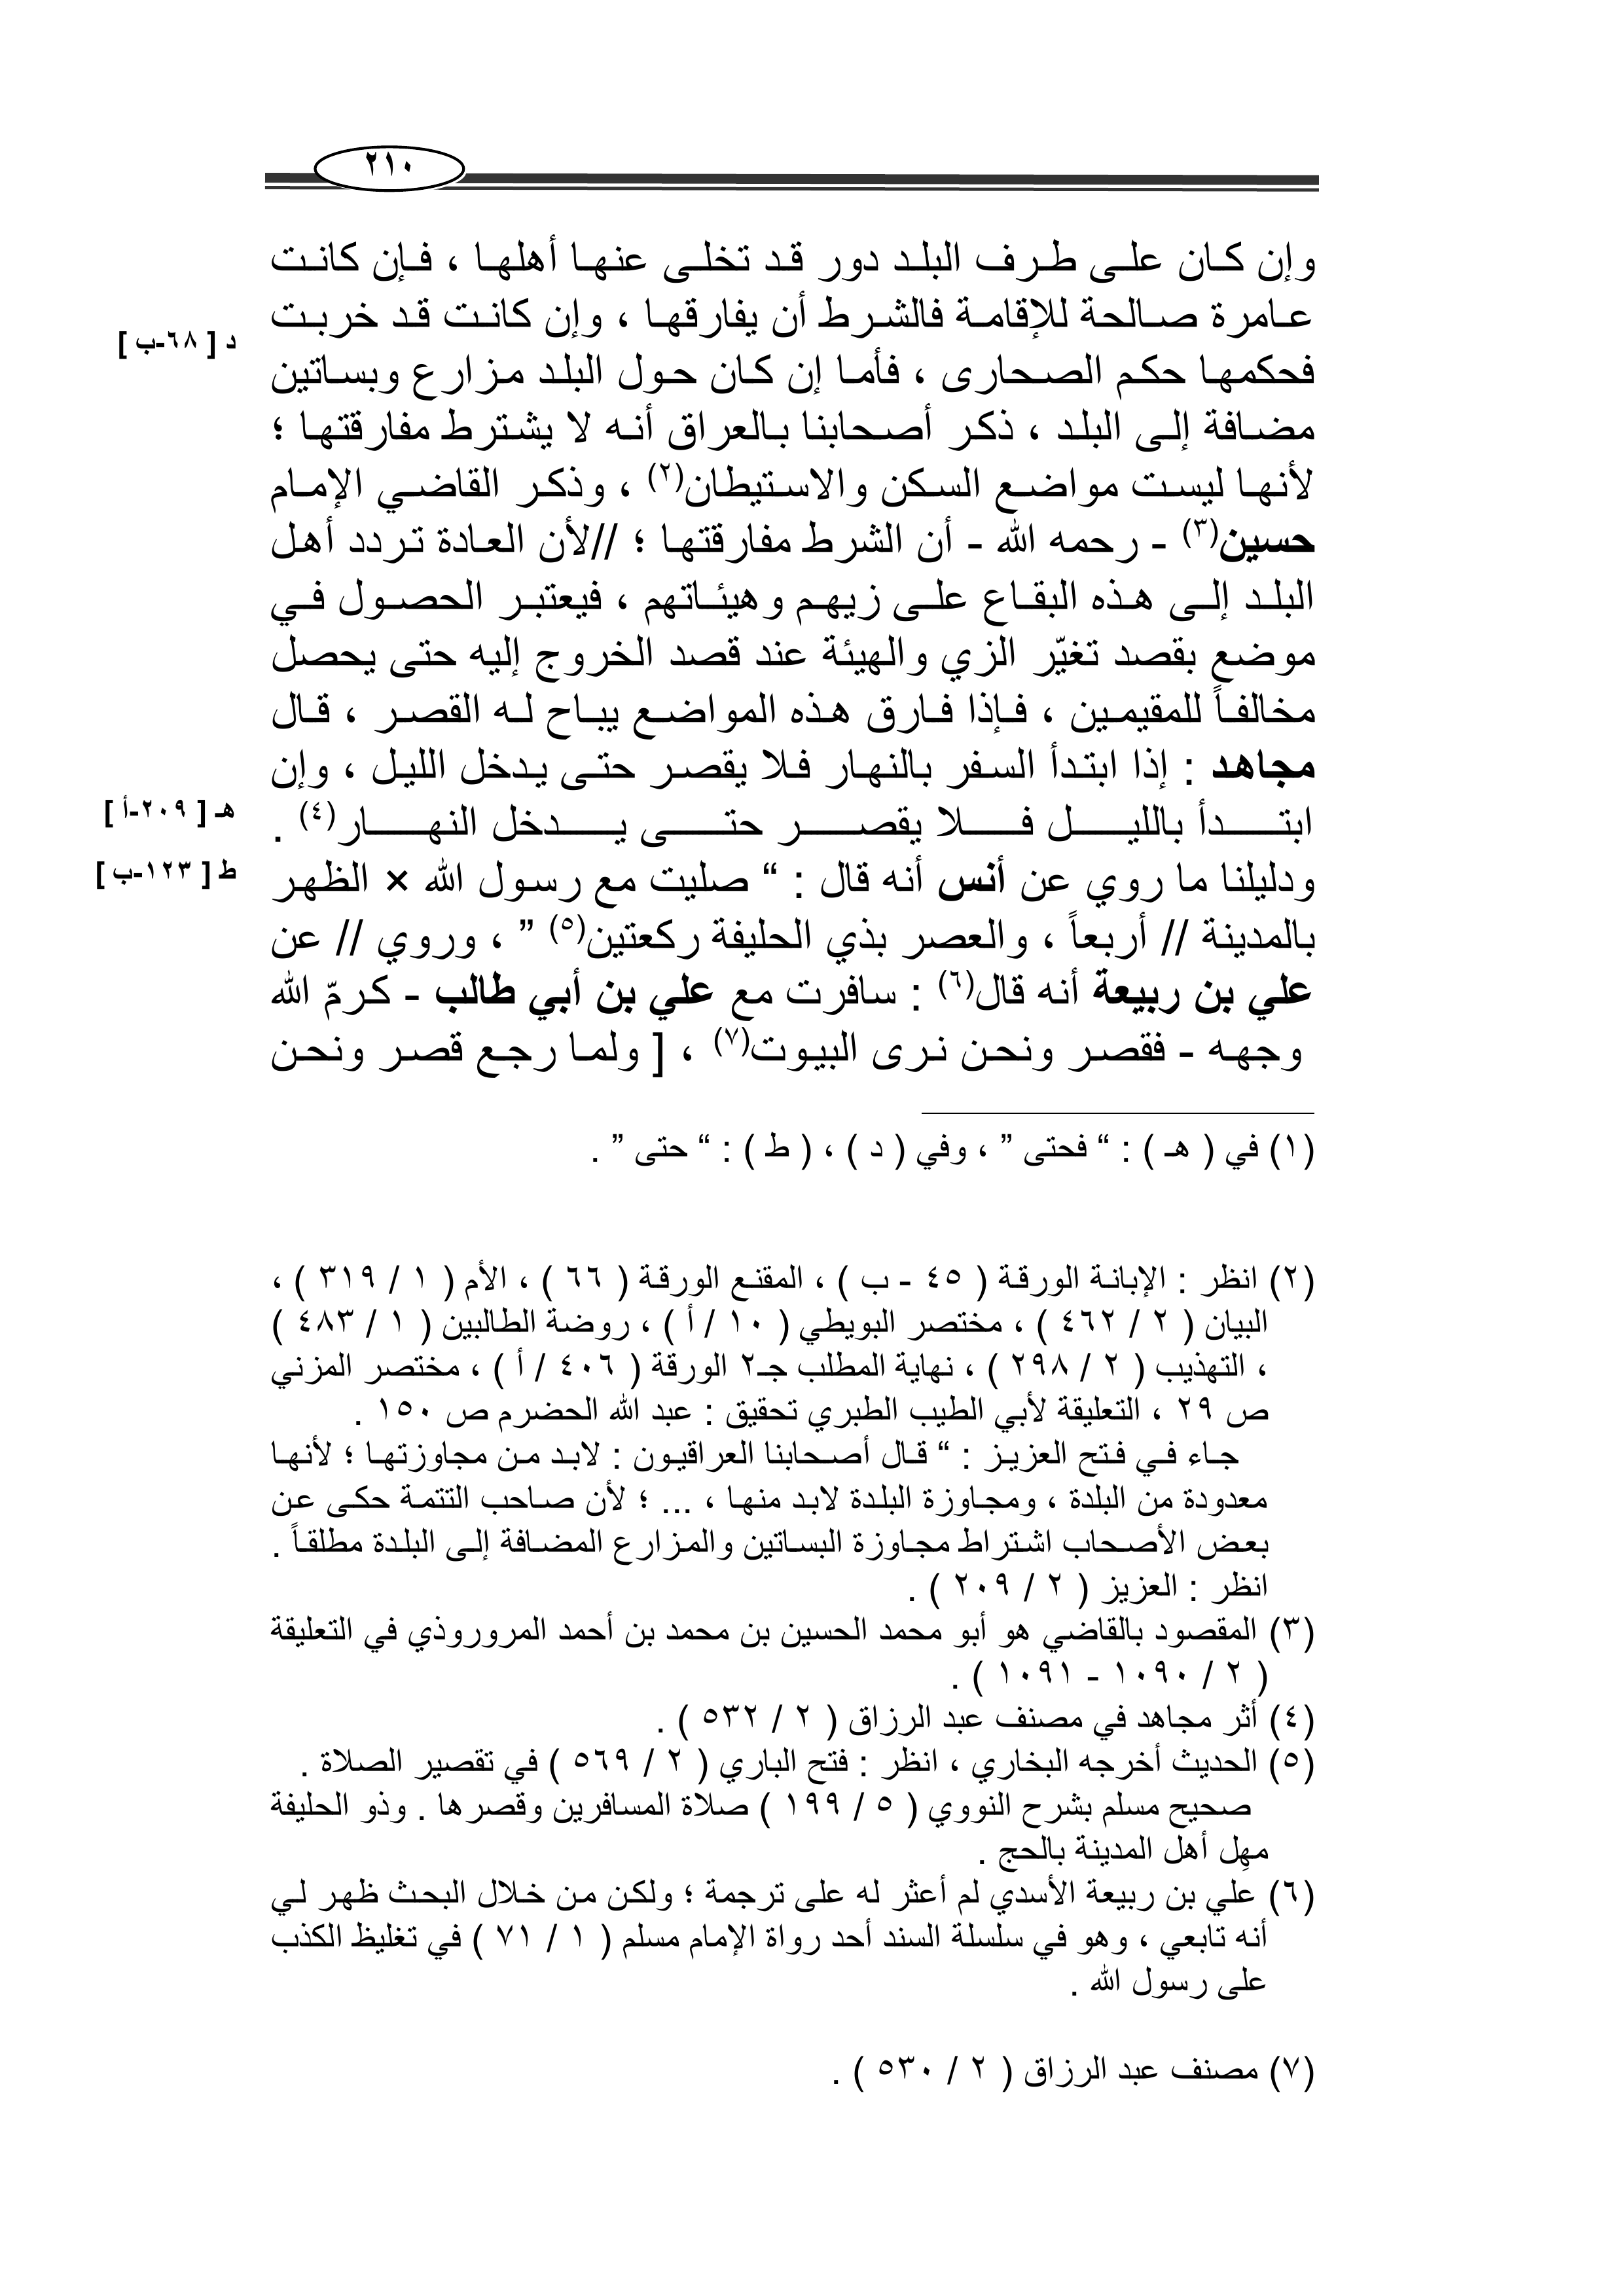 ٢١٠
وإن كان على طرف البلد دور قد تخلى عنها أهلها ، فإن كانت
عامرة صالحة للإقامة فالشرط أن يفارقها ، وإن كانت قد خربت
د [ ٦٨-ب ]
فحكمها حكم الصحارى ، فأما إن كان حول البلد مزارع وبساتين
مضافة إلى البلد ، ذكر أصحابنا بالعراق أنه لا يشترط مفارقتها ؛
لأنها ليست مواضع السكن والاستيطان(٢) ، وذكر القاضي الإمام
حسين(٣) - رحمه الله - أن الشرط مفارقتها ؛ //لأن العادة تردد أهل
البلد إلى هذه البقاع على زيهم وهيئاتهم ، فيعتبر الحصول في
موضع بقصد تغيّر الزي والهيئة عند قصد الخروج إليه حتى يحصل
مخالفاً للمقيمين ، فإذا فارق هذه المواضع يباح له القصر ، قال
مجاهد : إذا ابتدأ السفر بالنهار فلا يقصر حتى يدخل الليل ، وإن
هـ [ ٢٠٩-أ ]
ابتدأ بالليل فلا يقصر حتى يدخل النهار(٤) .
ط [ ١٢٣-ب ]
ودليلنا ما روي عن أنس أنه قال : “ صليت مع رسول الله × الظهر
بالمدينة // أربعاً ، والعصر بذي الحليفة ركعتين(٥) ” ، وروي // عن
علي بن ربيعة أنه قال(٦) : سافرت مع علي بن أبي طالب - كرمّ الله
وجهه - فقصر ونحن نرى البيوت(٧) ، [ ولما رجع قصر ونحن
(١) في ( هـ ) : “ فحتى ” ، وفي ( د ) ، ( ط ) : “ حتى ” .
(٢) انظر : الإبانة الورقة ( ٤٥ - ب ) ، المقنع الورقة ( ٦٦ ) ، الأم ( ١ / ٣١٩ ) ،
البيان ( ٢ / ٤٦٢ ) ، مختصر البويطي ( ١٠ / أ ) ، روضة الطالبين ( ١ / ٤٨٣ )
، التهذيب ( ٢ / ٢٩٨ ) ، نهاية المطلب جـ٢ الورقة ( ٤٠٦ / أ ) ، مختصر المزني
ص ٢٩ ، التعليقة لأبي الطيب الطبري تحقيق : عبد الله الحضرم ص ١٥٠ .
جاء في فتح العزيز : “ قال أصحابنا العراقيون : لابد من مجاوزتها ؛ لأنها
معدودة من البلدة ، ومجاوزة البلدة لابد منها ، ... ؛ لأن صاحب التتمة حكى عن
بعض الأصحاب اشتراط مجاوزة البساتين والمزارع المضافة إلى البلدة مطلقاً .
انظر : العزيز ( ٢ / ٢٠٩ ) .
(٣) المقصود بالقاضي هو أبو محمد الحسين بن محمد بن أحمد المروروذي في التعليقة
( ٢ / ١٠٩٠ - ١٠٩١ ) .
(٤) أثر مجاهد في مصنف عبد الرزاق ( ٢ / ٥٣٢ ) .
(٥) الحديث أخرجه البخاري ، انظر : فتح الباري ( ٢ / ٥٦٩ ) في تقصير الصلاة .
صحيح مسلم بشرح النووي ( ٥ / ١٩٩ ) صلاة المسافرين وقصرها . وذو الحليفة
مهِل أهل المدينة بالحج .
(٦) علي بن ربيعة الأسدي لم أعثر له على ترجمة ؛ ولكن من خلال البحث ظهر لي
أنه تابعي ، وهو في سلسلة السند أحد رواة الإمام مسلم ( ١ / ٧١ ) في تغليظ الكذب
على رسول الله .
(٧) مصنف عبد الرزاق ( ٢ / ٥٣٠ ) .